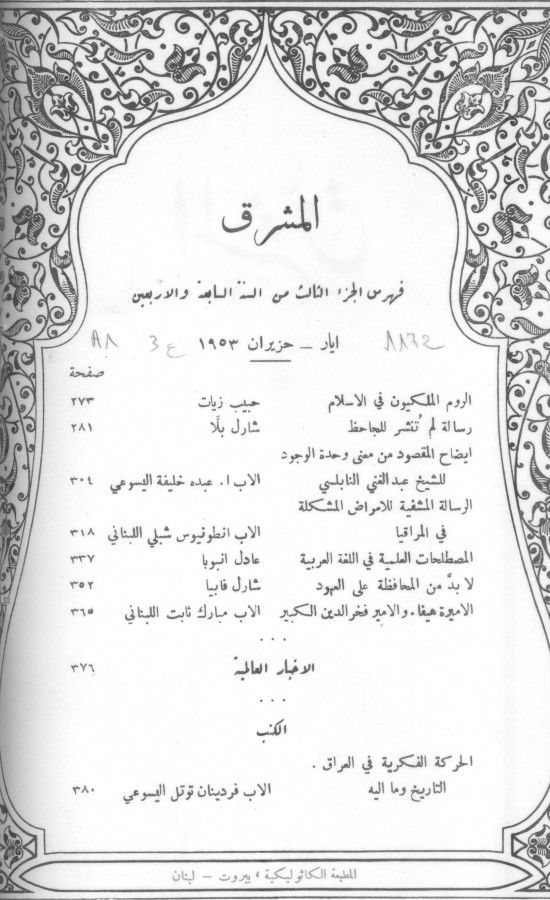 المشرق
فهرس الجزء الثالث من السنة السابعة والاربعين
ايار – حزيران ١٩٥٣
صفحة
الروم الملكيون في الاسلام حبيب زيات ٢٧٣
رسالة لم تُنشر للجاحظ شارل بلَّا ٢٨١
ايضاح المقصود من معنى وحدة الوجود
للشيخ عبد الغني النابلسي الاب ا. عبده خليفة اليسوعي ٣٠٤
الرسالة المشفية للامراض المشكلة
في المراقيا الاب انطونيوس شبلي اللبناني ٣١٨
المصطلحات العلمية في اللغة العربية عادل انبوبا ٣٣٧
لا بدَّ من المحافظة على العهود شارل فابيا ٣٥٢
الاميرة هيفاء والامير فخرالدين الكبير الاب مبارك ثابت اللبناني ٣٦٥
. . .
الاخبار العالمية ٣٧٦
. . .
الكتب
الحركة الفكرية في العراق .
التاريخ وما اليه الاب فردينان توتل اليسوعي ٣٨٠
المطبعة الكاثوليكية ، بيروت – لبنان